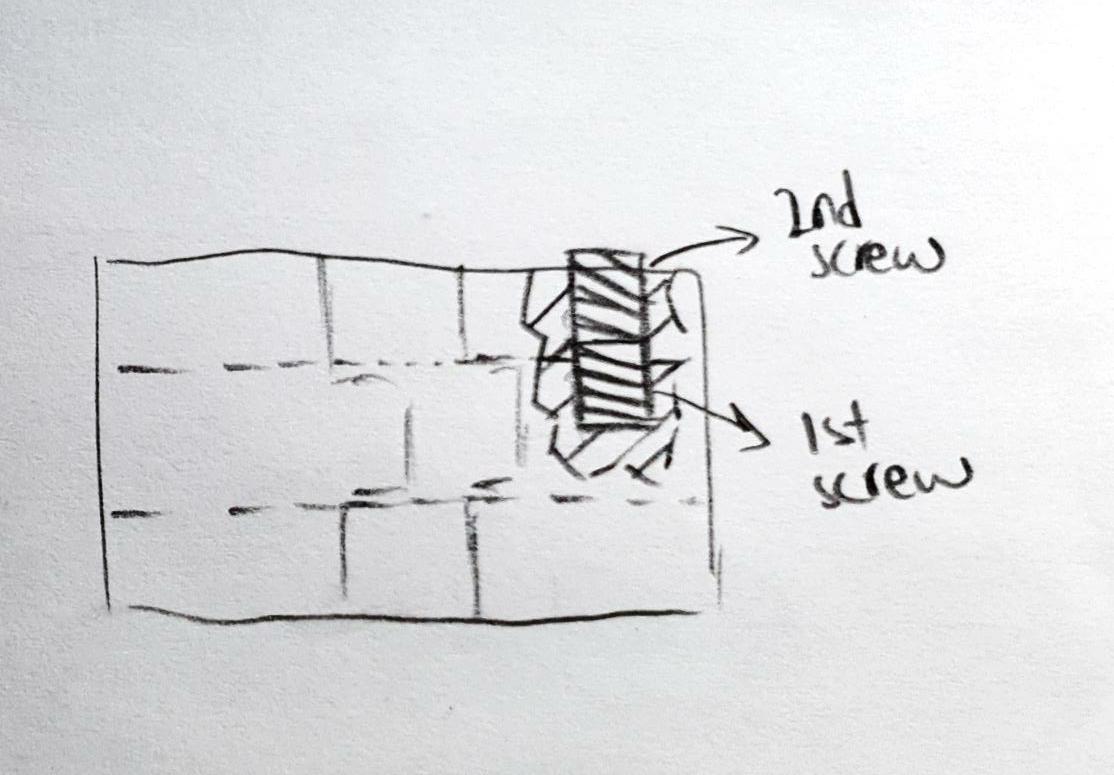 2nd
screw
1st
screw